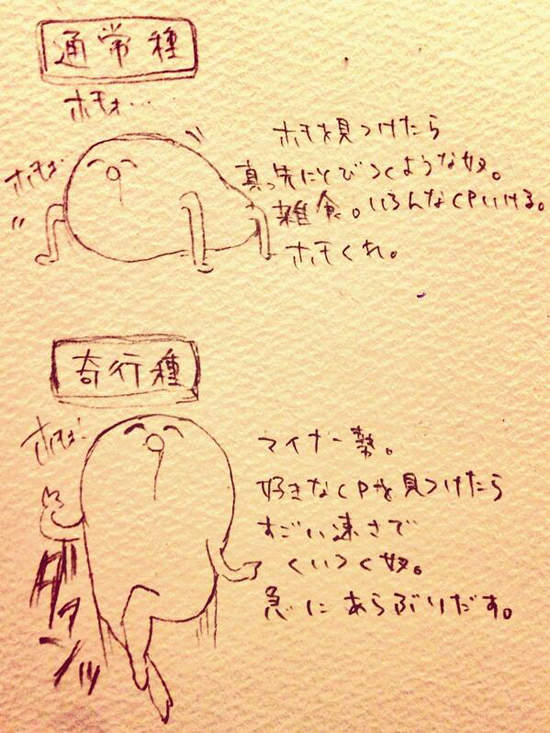 通常種
ホモォ…
ホモォ…
ホモを見つけたら
真っ先にとびつくような奴。
雑食。いろんなCPいける。
ホモくれ。
奇行種
ホモォ…
マイナー勢。
好きなCPを見つけたら
すごい速さで
くいつく奴。
急にあらぶりだす。
ダァンッ